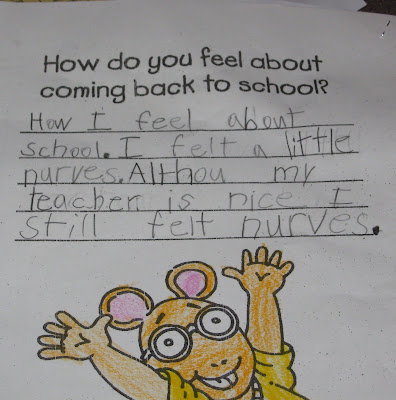 How do you feel about
coming back to school?
How I feel about
school. I felt a little
nurves. Althou my
teacher is nice I
still felt nurves.